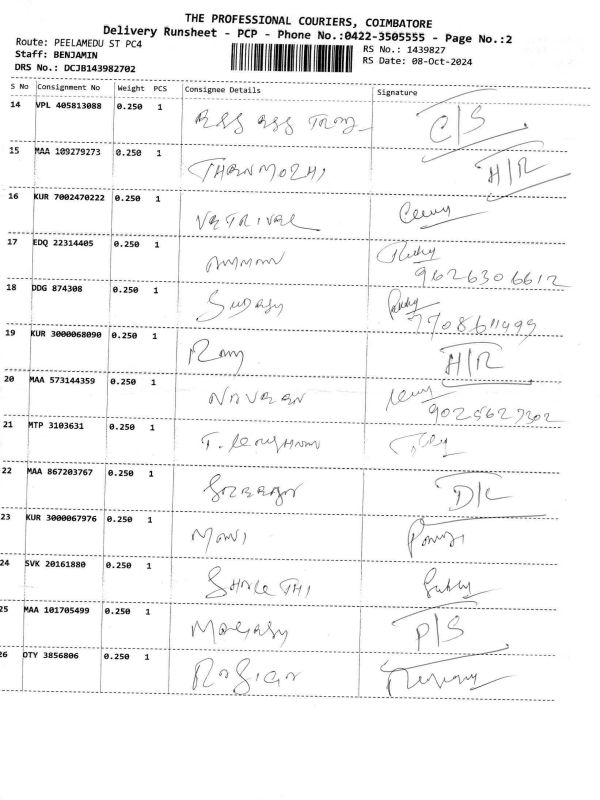 THE PROFESSIONAL COURIERS, COIMBATORE
Delivery Runsheet - PCP - Phone No.:0422-3505555 - Page No.:2
Route: PEELAMEDU ST PC4
RS No.: 1439827
Staff: BENJAMIN
RS Date: 08-Oct-2024
DRS No.: DCJB143982702
S No Consignment No Weight PCS Consignee Details Signature
14 VPL 405813088 0.250 1 C/S
15 MAA 109279273 0.250 1 THENMOZHI H/R
16 KUR 7002470222 0.250 1 VETRIVEL
17 EDQ 22314405 0.250 1 9626306612
18 DDG 874308 0.250 1 7708611499
19 KUR 3000068090 0.250 1 H/R
20 MAA 573144359 0.250 1 NAVEEN 9025627302
21 MTP 3103631 0.250 1
22 MAA 867203767 0.250 1
23 KUR 3000067976 0.250 1 MANI
24 SVK 20161880 0.250 1
25 MAA 101705499 0.250 1 P/S
26 OTY 3856806 0.250 1